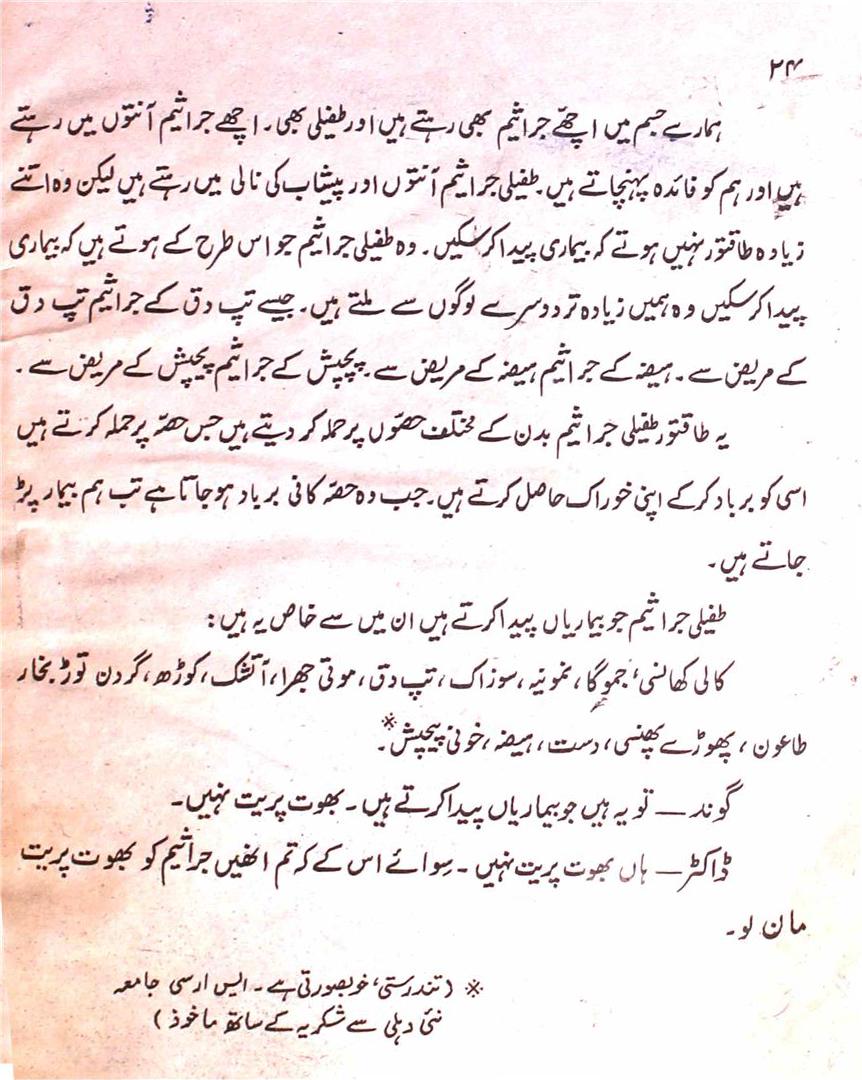 ۲۴
ہمارے جسم میں اچھے جراثیم بھی رہتے ہیں اور طفیلی بھی۔ اچھے جراثیم آنتوں میں رہتے
ہیں اور ہم کو فائدہ پہنچاتے ہیں۔ طفیلی جراثیم آنتوں اور پیشاب کی نالی میں رہتے ہیں لیکن وہ اتنے
زیادہ طاقتور نہیں ہوتے کہ بیماری پیدا کرسکیں۔ وہ طفیلی جراثیم جو اس طرح کے ہوتے ہیں کہ بیماری
پیدا کرسکیں وہ ہمیں زیادہ تر دوسرے لوگوں سے ملتے ہیں۔ جیسے تپ دق کے جراثیم تپ دق
کے مریض سے۔ ہیضہ کے جراثیم ہیضہ کے مریض سے۔ پیچش کے جراثیم پیچش کے مریض سے۔
یہ طاقتور طفیلی جراثیم بدن کے مختلف حصّوں پر حملہ کر دیتے ہیں جس حصّہ پر حملہ کرتے ہیں
اسی کو برباد کرکے اپنی خوراک حاصل کرتے ہیں۔ جب وہ حصّہ کافی برباد ہو جاتا ہے تب ہم بیمار پڑ
جاتے ہیں۔
طفیلی جراثیم جو بیماریاں پیدا کرتے ہیں ان میں سے خاص یہ ہیں:
کالی کھانسی، جموگا، نمونیہ، سوزاک، تپ دق، موتی جھرا، آتشک، کوڑھ، گردن توڑ بخار
طاعون، پھوڑے پھنسی، دست، ہیضہ، خونی پیچش※۔
گوند — تو یہ ہیں جو بیماریاں پیدا کرتے ہیں۔ بھوت پریت نہیں۔
ڈاکٹر — ہاں بھوت پریت نہیں۔ سوائے اس کے کہ تم انھیں جراثیم کو بھوت پریت
مان لو۔
※ (تندرستی، خوبصورتی ہے۔ ایس ارسی جامعہ
نئی دہلی سے شکریہ کے ساتھ ماخوذ)